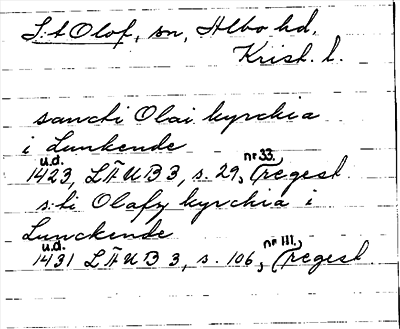 S:t Olof, sn, Albo hd,
Krist. l.
sancti Olai kyrckia
i Lunkende
u.d. nr 33.
1423, LÄUB 3, s. 29, (regest
s:ti Olafz kyrckia i
Lunckende
u.d. nr 111.
1431 LÄUB 3, s. 106, (regest